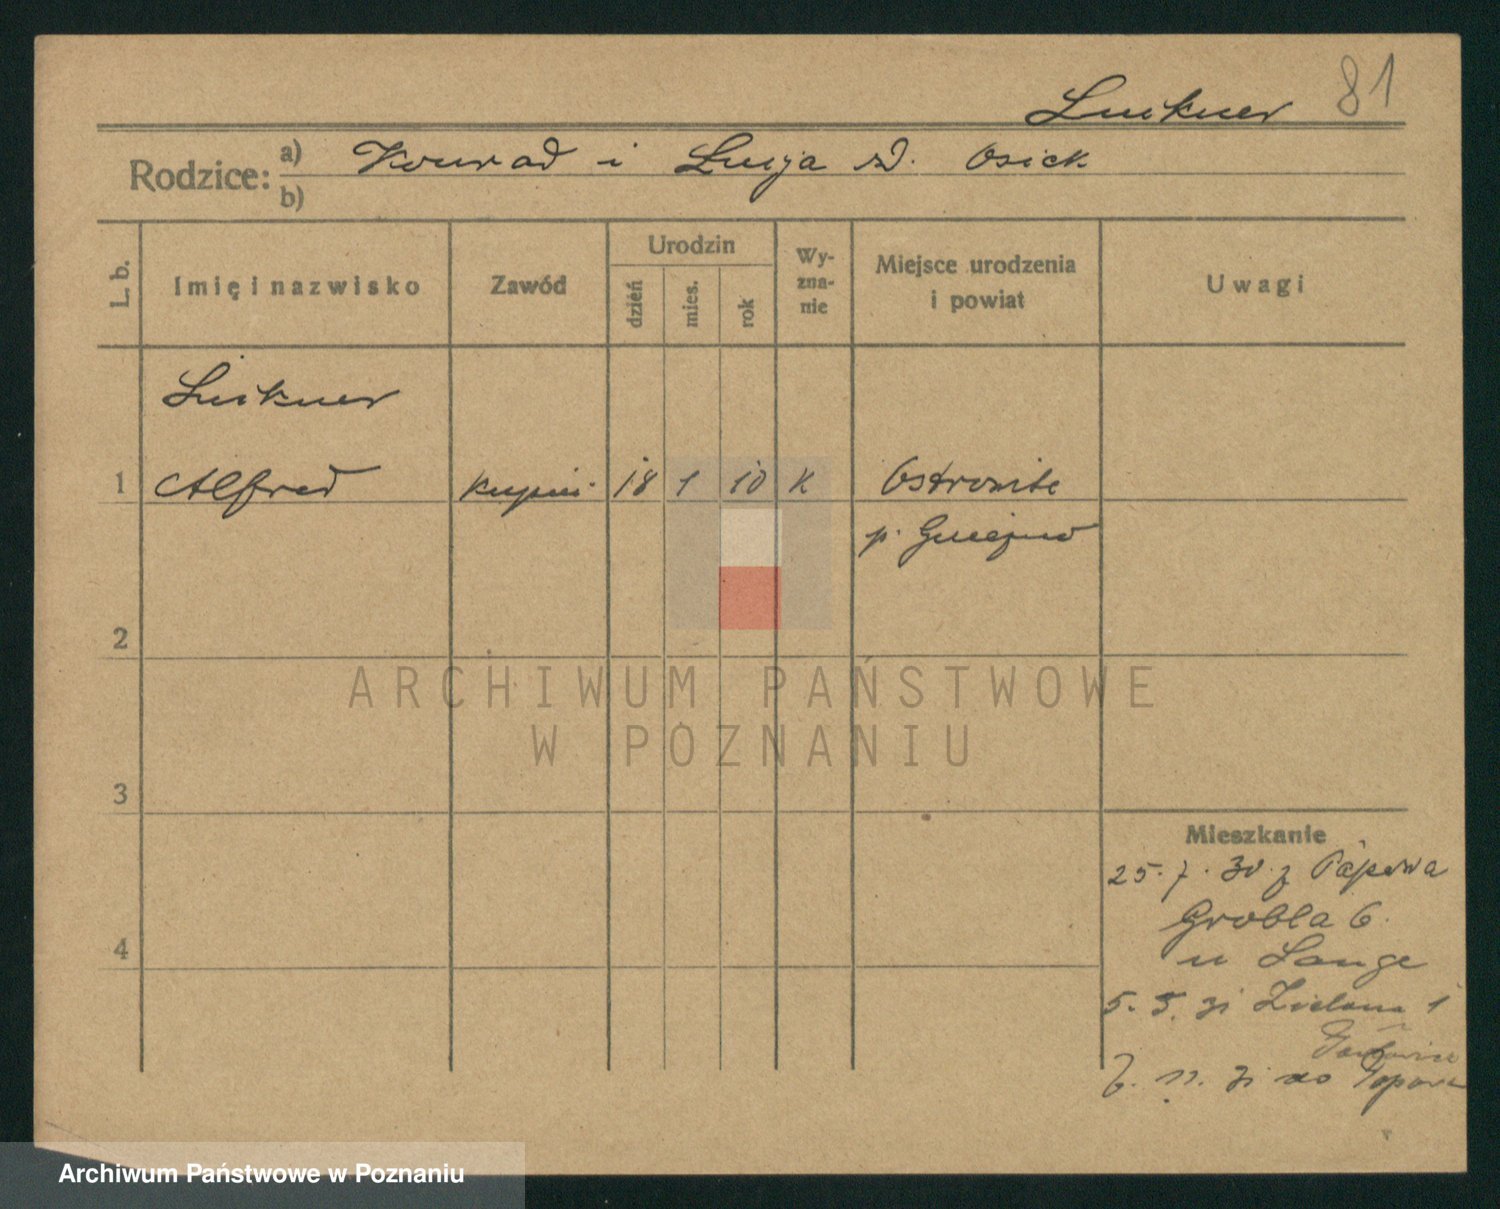 Luckner 81
Rodzice: a) Konrad i Lucja zd. Osick
b)
L. b. Imię i nazwisko Zawód Urodzin dzień mies. rok Wyznanie Miejsce urodzenia i powiat Uwagi
Luckner
1 Alfred kupiec 18 1 10 K Ostrowite
p. Gniejewo
2
ARCHIWUM PAŃSTWOWE
W POZNANIU
3
Mieszkanie
25. 7. 30 z Papowa
Grobla 6.
4
u Lange
5. 5. 31 Zielona 1
7. 11. 31 do Papowa
Archiwum Państwowe w Poznaniu